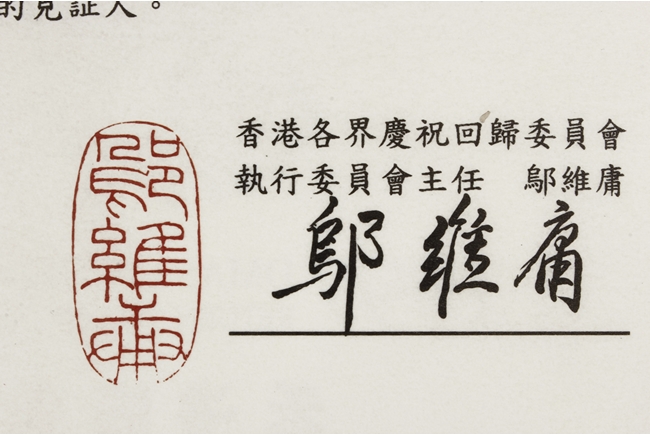 的見証人。
香港各界慶祝回歸委員會
執行委員會主任　鄔維庸
鄔維庸
鄔維庸